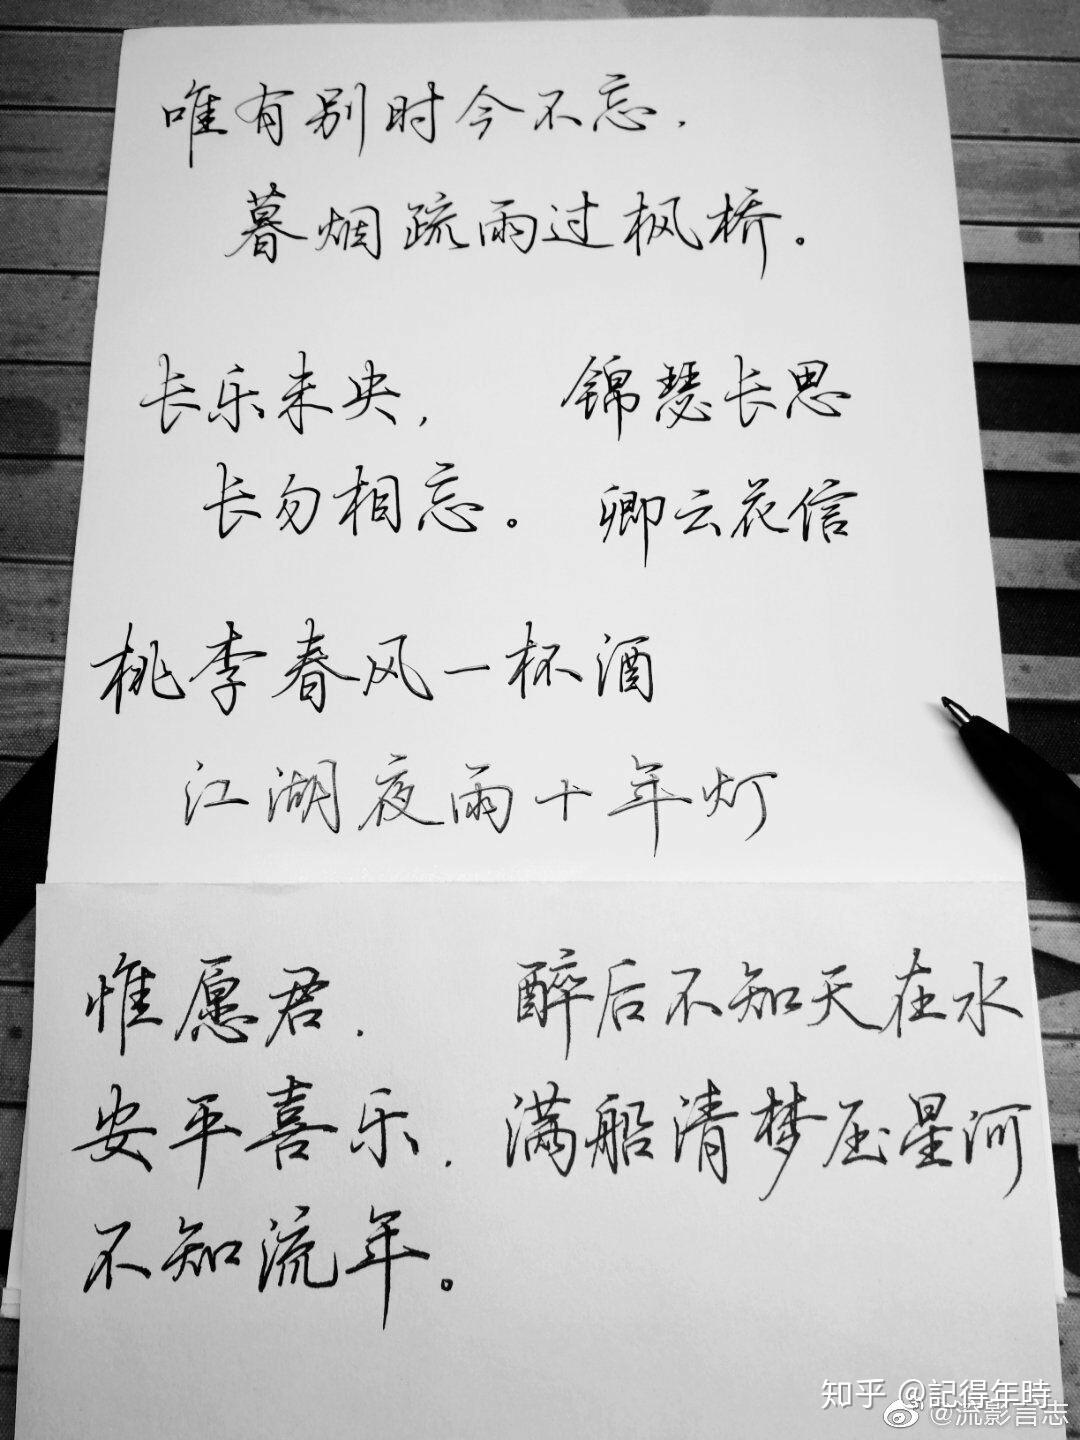 唯有别时今不忘,
暮烟疏雨过枫桥。
长乐未央,
长勿相忘。
锦瑟长思
卿云花信
桃李春风一杯酒
江湖夜雨十年灯
惟愿君,
安平喜乐,
不知流年。
醉后不知天在水
满船清梦压星河
知乎 @記得年時
@流影言志